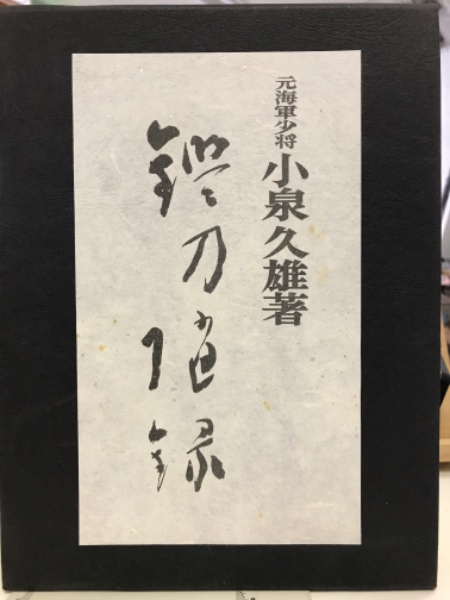 元海軍少将 小泉久雄著
刀随録